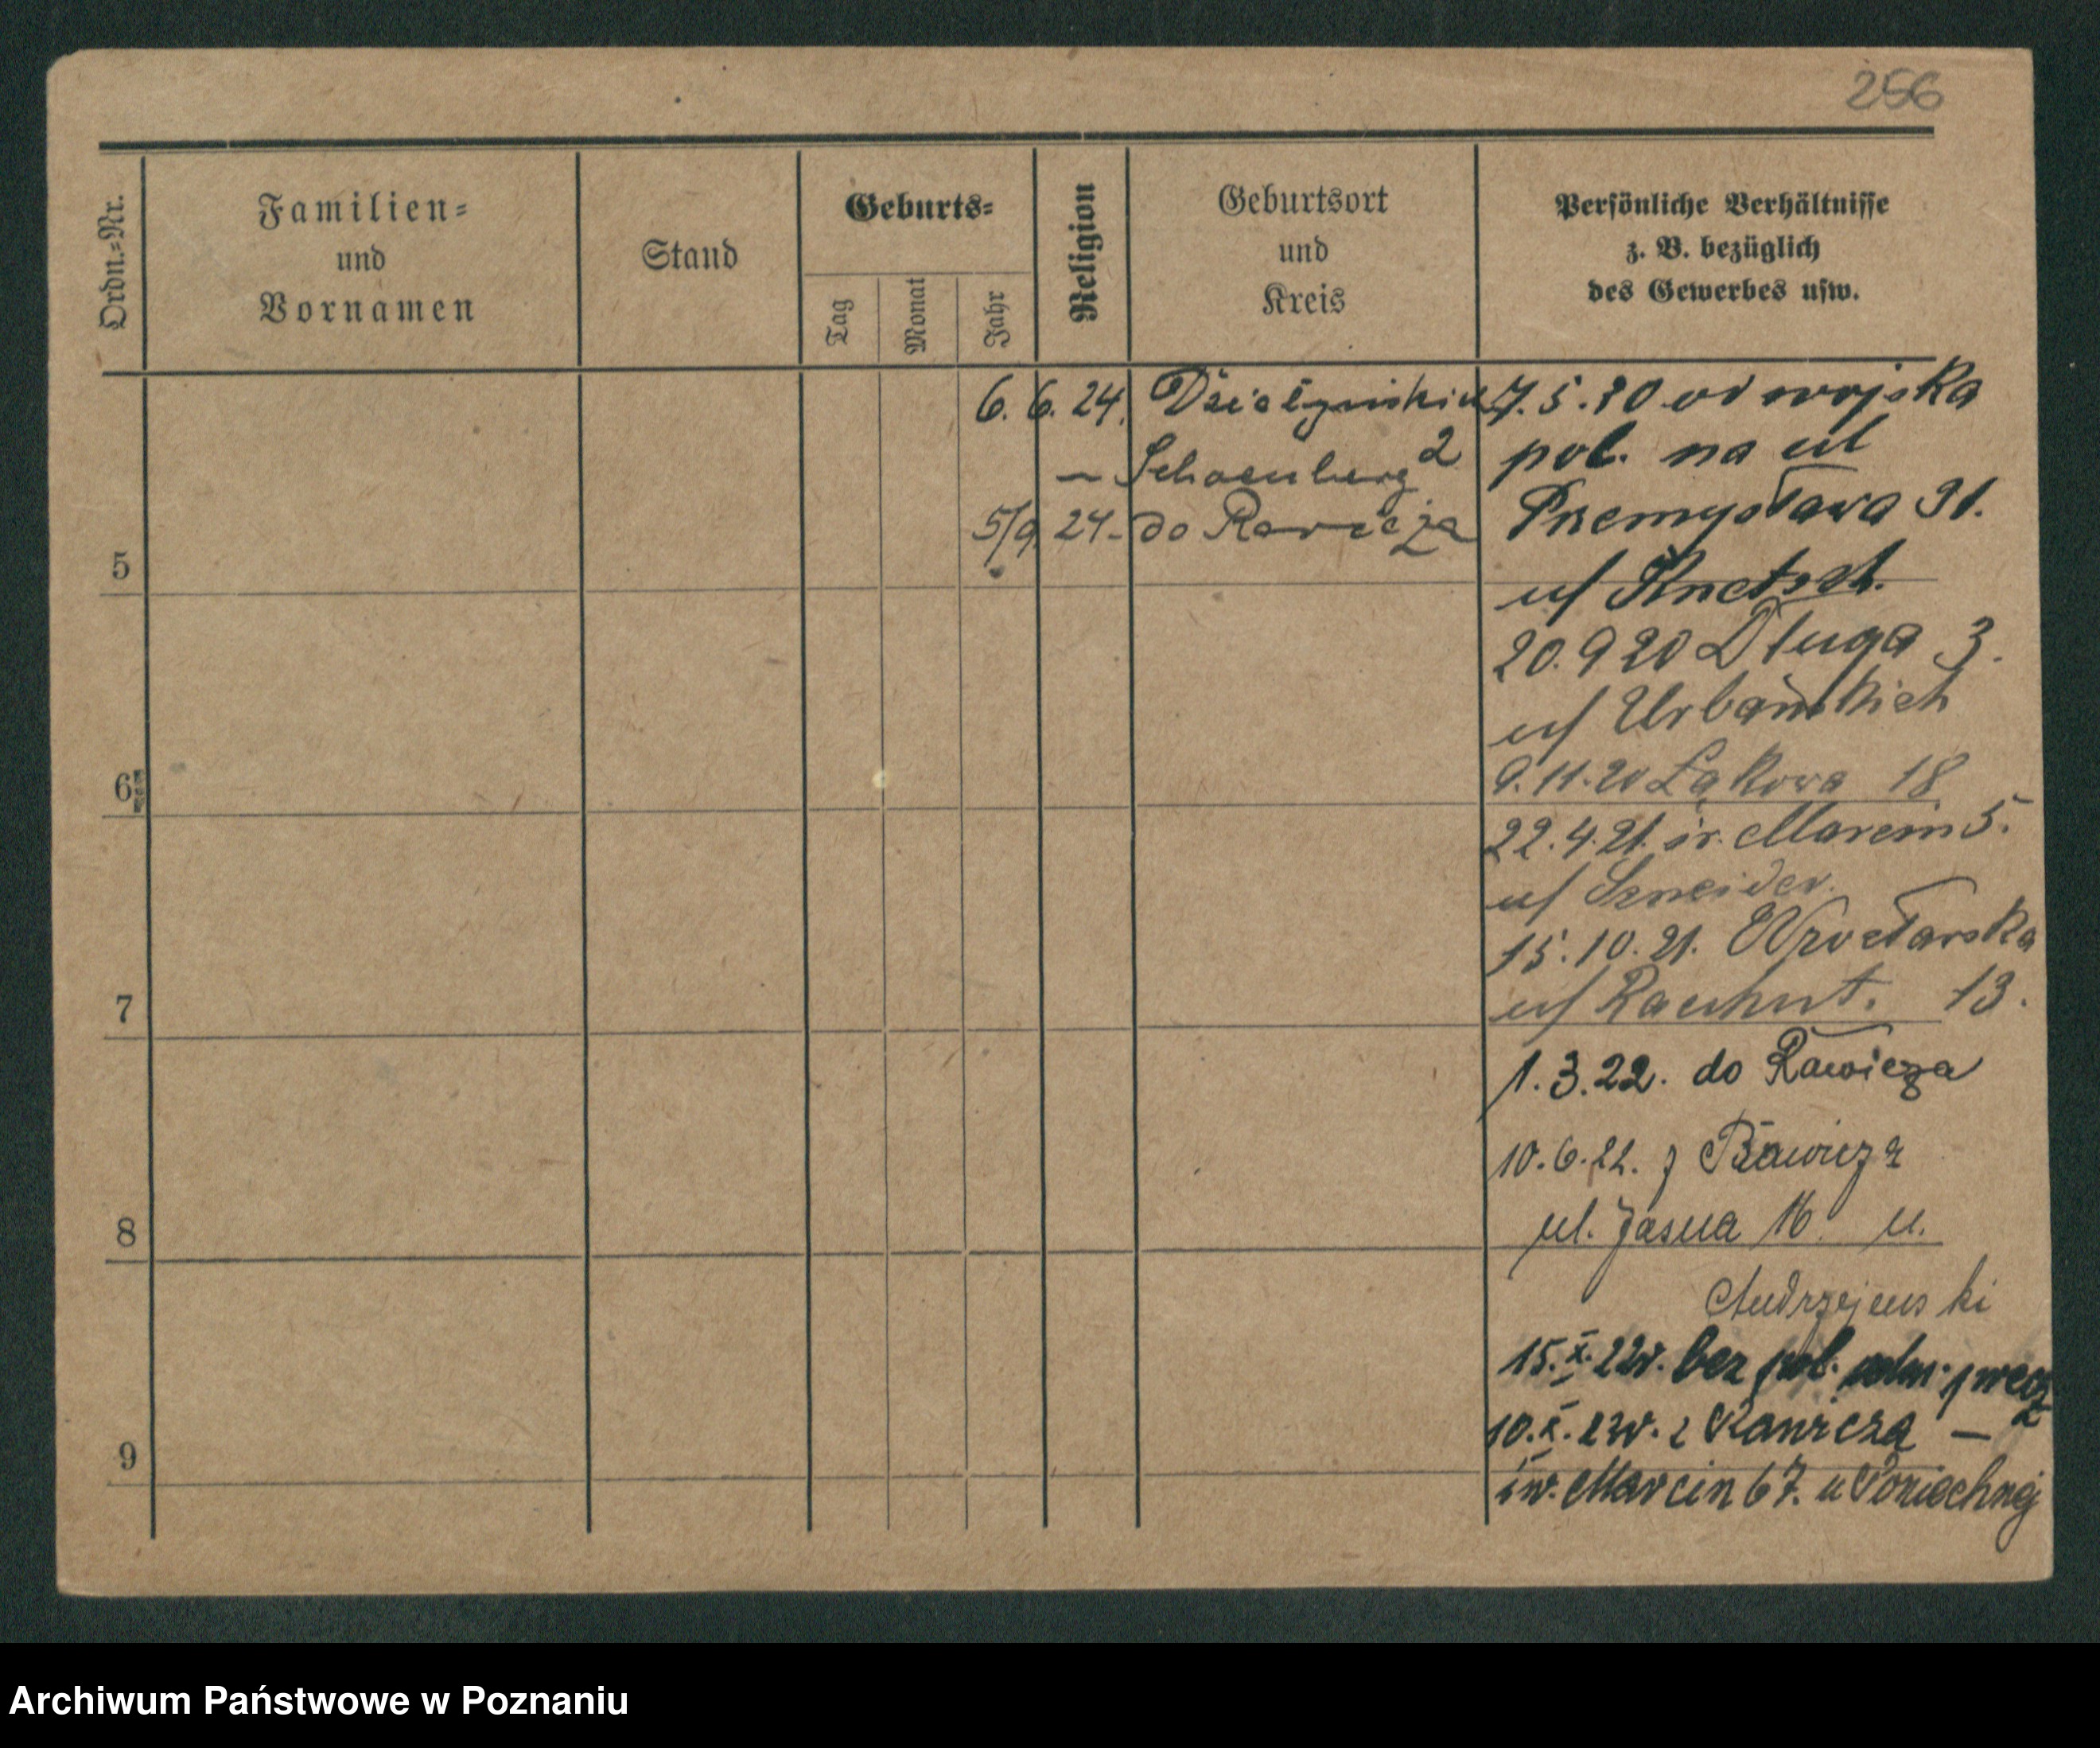 256
Ordn.=Nr.
Familien=
und
Vornamen
Stand
Geburts=
Tag
Monat
Jahr
Religion
Geburtsort
und
Kreis
Persönliche Verhältnisse
z. B. bezüglich
des Gewerbes usw.
6. 6. 24.
— Schoenberg 2
5/9. 24 - do Rawicza
5
6
7
8
9
7.5.20 od wojska
pol. na ul
Przemysława 31.
u/
20.9 20 Długa 3.
u/ Urbańskich
9.11.20 Łąkowa 18
22.4.21. św. Marcin 5.
u/ Szneider.
15.10.21. Wrocławska
u/ Rauhut. 13.
1.3.22. do Rawicza
10.6.22. z Rawicza
ul. Jasna 16. u.
Andrzejewski
15.X.22r. bez pol.
10.X.23r. z Rawicza —
św. Marcin 67. u
Archiwum Państwowe w Poznaniu